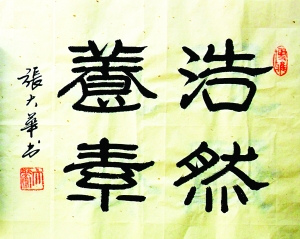 浩然
養素
張大華书